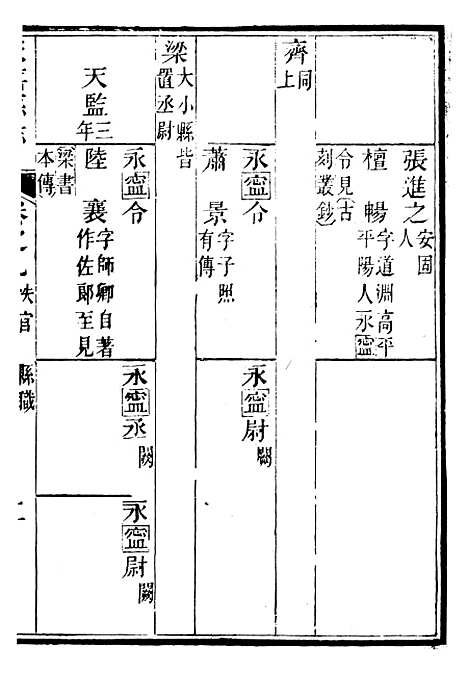 張進之安固
人
檀暢字道淵高平
平陽人永寍
令見古
刻叢鈔
齊同
上
永寍令
永寍尉闕
蕭景字子照
有傳
梁大小縣皆
置丞尉
永寍令
永寍丞闕
永寍尉闕
天監三
年
陸襄字師卿自著
作佐郎至見
梁書
本傳
秩官
縣職